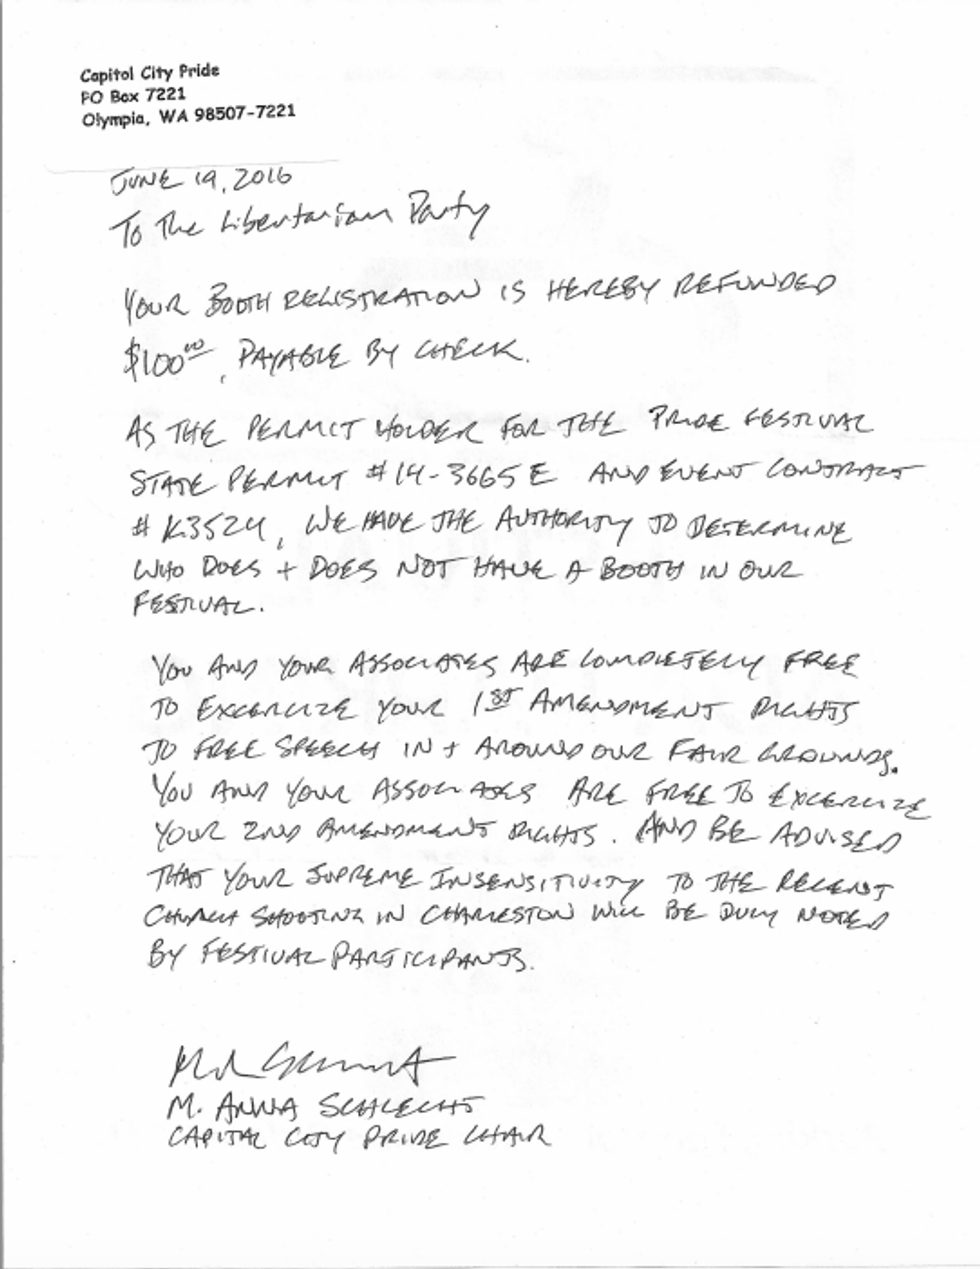 Capitol City Pride
PO Box 7221
Olympia, WA 98507-7221
JUNE 19, 2016
To The Libertarian Party
YOUR BOOTH REGISTRATION IS HEREBY REFUNDED
$100⁰⁰, PAYABLE BY CHECK.
AS THE PERMIT HOLDER FOR THE PRIDE FESTIVAL
STATE PERMIT #14-3665E AND EVENT CONTRACT
# K3524, WE HAVE THE AUTHORITY TO DETERMINE
WHO DOES + DOES NOT HAVE A BOOTH IN OUR
FESTIVAL.
YOU AND YOUR ASSOCIATES ARE COMPLETELY FREE
TO EXCERCIZE YOUR 1ST AMENDMENT RIGHTS
TO FREE SPEECH IN + AROUND OUR FAIR GROUNDS.
YOU AND YOUR ASSOCIATES ARE FREE TO EXCERCIZE
YOUR 2ND AMENDMENT RIGHTS. AND BE ADVISED
THAT YOUR SUPREME INSENSITIVITY TO THE RECENT
CHURCH SHOOTING IN CHARLESTON WILL BE DULY NOTED
BY FESTIVAL PARTICIPANTS.
M. ANNA SCHLECHT
CAPITAL CITY PRIDE CHAIR